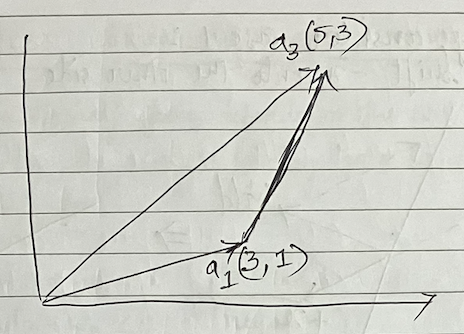 a₃(5,3)
a₁(3,1)